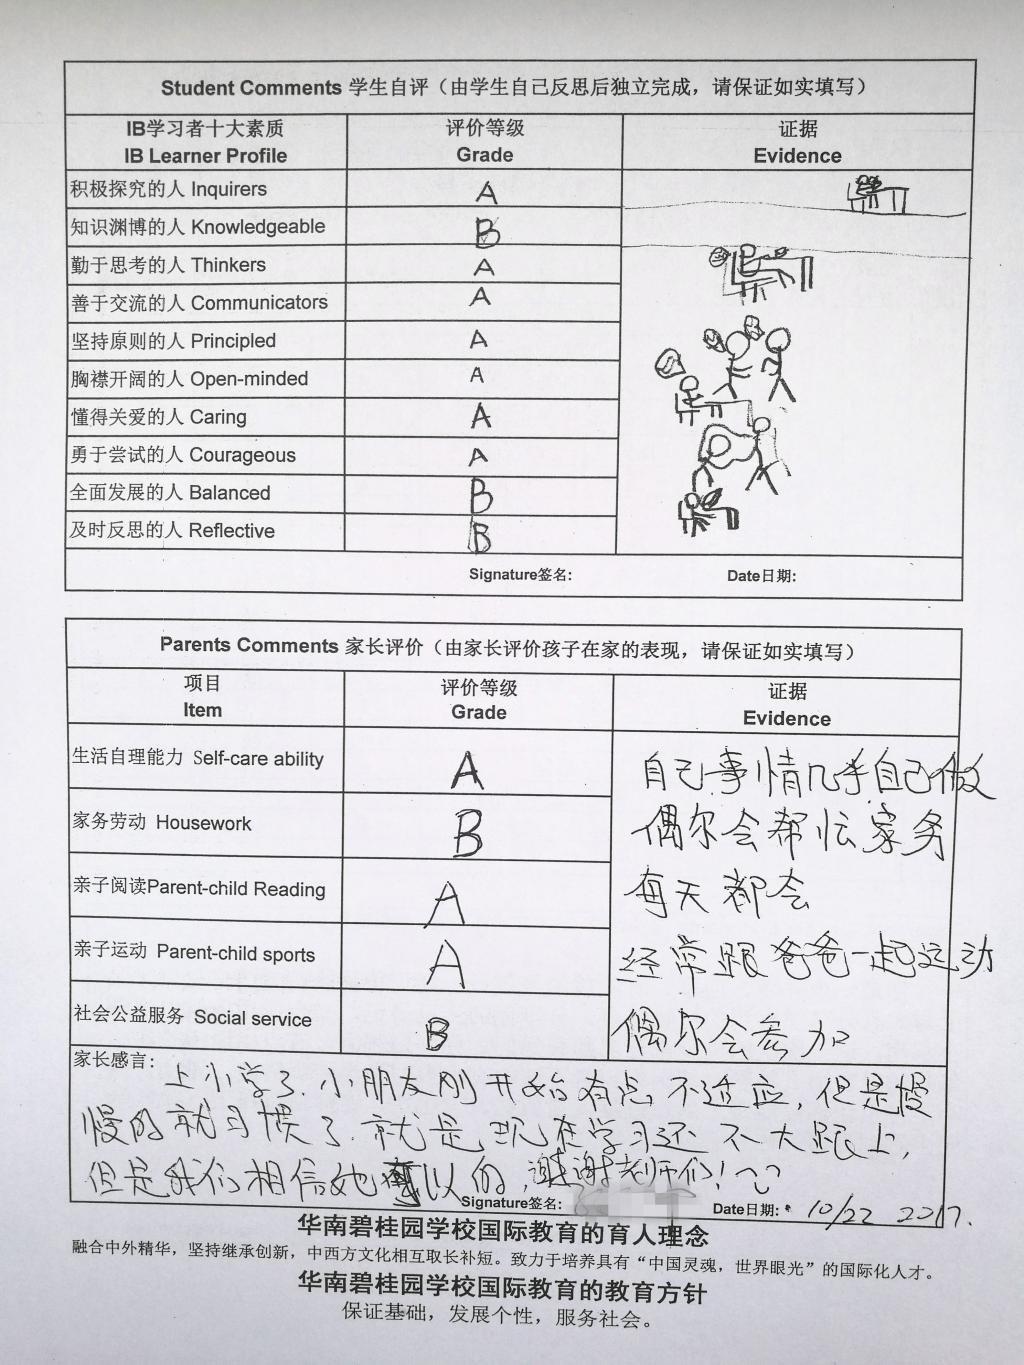 Student Comments 学生自评（由学生自己反思后独立完成，请保证如实填写）
IB学习者十大素质 评价等级 证据
IB Learner Profile Grade Evidence
积极探究的人 Inquirers A
知识渊博的人 Knowledgeable B
勤于思考的人 Thinkers A
善于交流的人 Communicators A
坚持原则的人 Principled A
胸襟开阔的人 Open-minded A
懂得关爱的人 Caring A
勇于尝试的人 Courageous A
全面发展的人 Balanced B
及时反思的人 Reflective B
Signature签名: Date日期:
Parents Comments 家长评价（由家长评价孩子在家的表现，请保证如实填写）
项目 评价等级 证据
Item Grade Evidence
生活自理能力 Self-care ability A 自己事情几乎自己做
家务劳动 Housework B 偶尔会帮忙家务
亲子阅读Parent-child Reading A 每天都会
亲子运动 Parent-child sports A 经常跟爸爸一起运动
社会公益服务 Social service B 偶尔会参加
家长感言:
上小学了，小朋友刚开始有点不适应，但是慢
慢的就习惯了，就是现在学习还不大跟上，
但是我们相信她可以的，谢谢老师们！
Signature签名: Date日期: 10/22 2017.
华南碧桂园学校国际教育的育人理念
融合中外精华，坚持继承创新，中西方文化相互取长补短。致力于培养具有“中国灵魂，世界眼光”的国际化人才。
华南碧桂园学校国际教育的教育方针
保证基础，发展个性，服务社会。